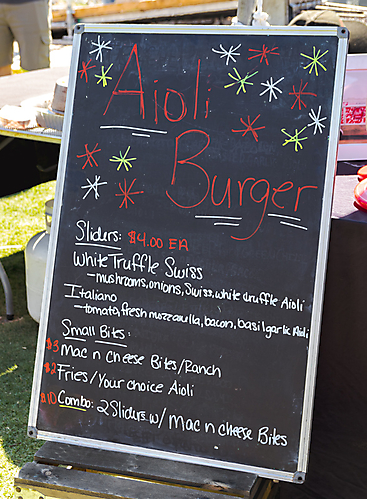 Aioli
Burger
Sliders: $4.00 EA
White Truffle Swiss
- mushrooms, onions, Swiss, white truffle Aioli
Italiano
- tomato, fresh mozzarella, bacon, basil garlic Aioli
Small Bites:
$3 Mac n cheese Bites/Ranch
$2 Fries/Your choice Aioli
$10 Combo: 2 Sliders w/ Mac n cheese Bites